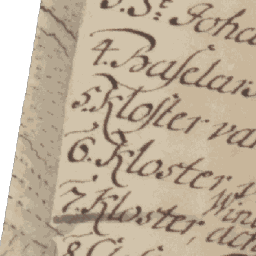 3. St. Joha
4. Baselar
5. Kloster va
6. Kloster, v
Wind
7. Kloster, ach
8.